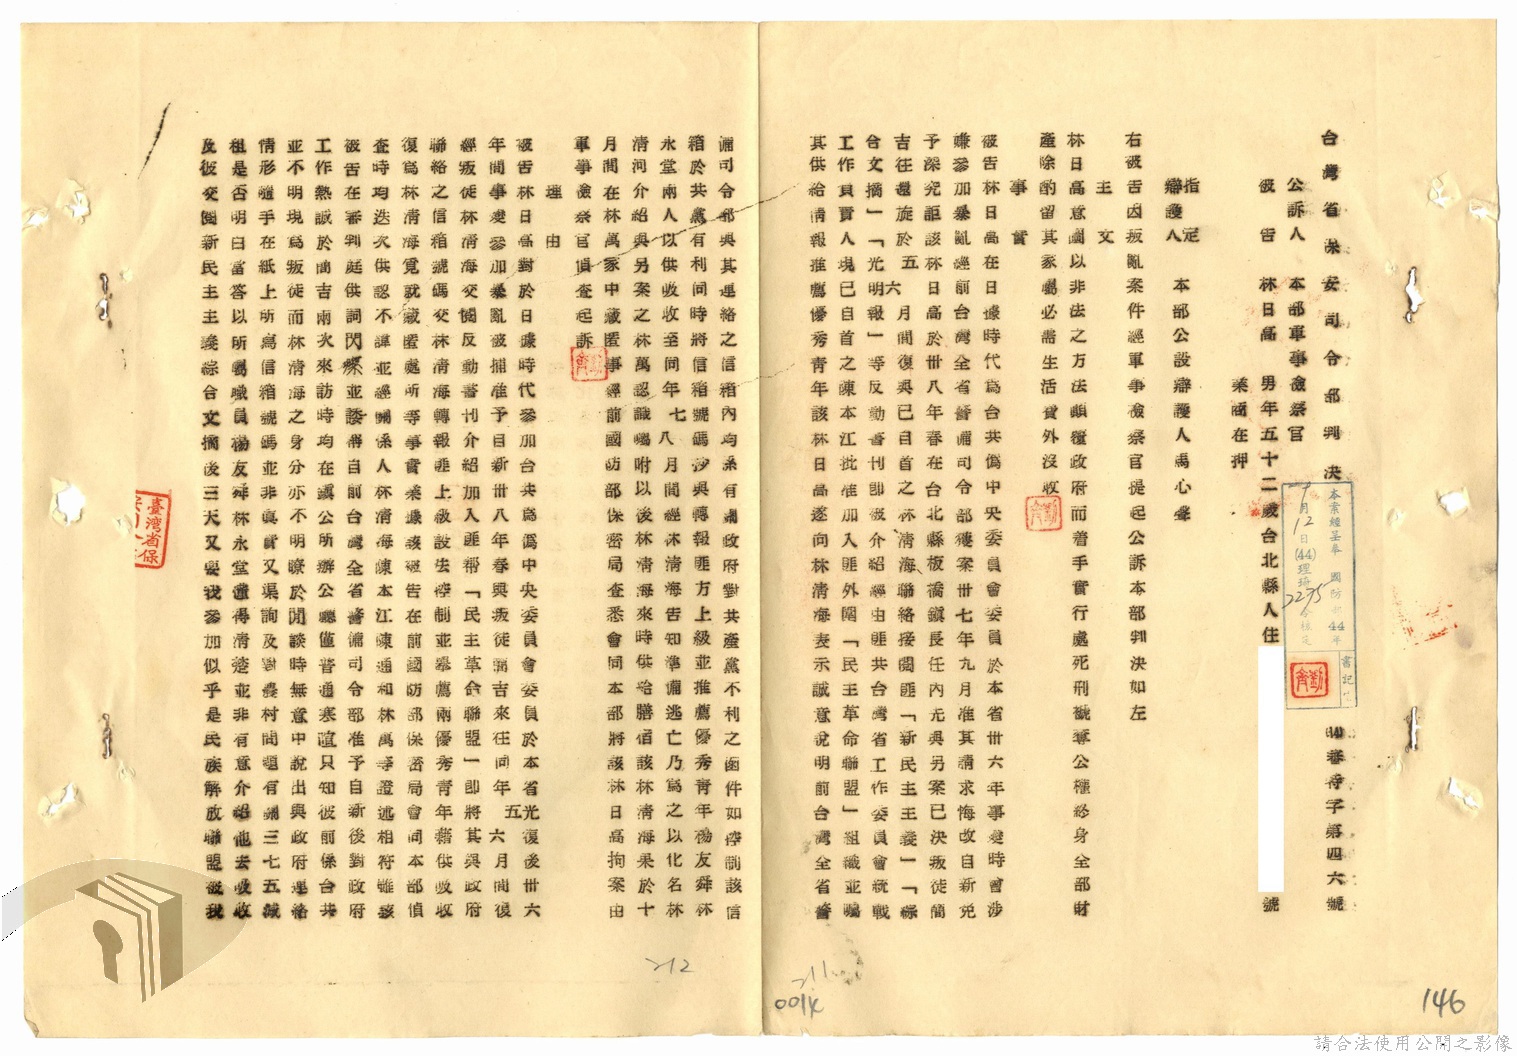 台灣省保安司令部判決
審字第四六號
公訴人 本部軍事檢察官
被告 林日高 男年五十二歲台北縣人住 號
業商在押
指定
辯護人 本部公設辯護人
右被告因叛亂案件經軍事檢察官提起公訴本部判決如左
主文
林日高意圖以非法之方法顛覆政府而着手實行處死刑褫奪公權終身全部財
產除酌留其家屬必需生活費外沒收
事實
被告林日高在日據時代為台共偽中央委員會委員於本省卅六年事變時曾涉
嫌參加暴亂經前台灣全省警備司令部獲案卅七年九月准其請求悔改自新免
予深究詎該林日高於卅八年春在台北縣板橋鎮長任內尤與另案已決叛徒簡
吉往還旋於五六月間復與已自首之林清海聯絡接閱匪「新民主主義」「綜
合文摘」「光明報」等反動書刊即被介紹經由匪共台灣省工作委員會統戰
工作負責人現已自首之陳本江批准加入匪外圍「民主革命聯盟」組織並囑
其供給情報推薦優秀青年該林日高遂向林清海表示誠意說明前台灣全省警
備司令部與其連絡之信箱內均系有關政府對共產黨不利之函件如控制該信
箱於共黨有利同時將信箱號碼抄與轉報匪方上級並推薦優秀青年楊友舜林
永堂兩人以供吸收至同年七八月間經林清海告知準備逃亡乃為之以化名林
清河介紹與另案之林萬認識囑咐以後林清海來時供給膳宿該林清海果於十
月間在林萬家中藏匿事經前國防部保密局查悉會同本部將該林日高拘案由
軍事檢察官偵查起訴
理由
被告林日高對於日據時代參加台共為偽中央委員會委員於本省光復後卅六
年間事變參加暴亂被捕准予自新卅八年春與叛徒簡吉來往同年五六月間復
經叛徒林清海交閱反動書刊介紹加入匪幫「民主革命聯盟」即將其與政府
聯絡之信箱號碼交林清海轉報匪上級設法控制並舉薦兩優秀青年藉供吸收
復為林清海覓就藏匿處所等事實業據該被告在前國防部保密局會同本部偵
查時均迭次供認不諱並經關係人林清海陳本江陳通和林萬等證述相符雖該
被告在審判庭供詞閃爍並諉稱自前台灣全省警備司令部准予自新後對政府
工作熱誠於簡吉兩次來訪時均在鎮公所辦公廳僅普通寒暄只知彼前係台共
並不明現為叛徒而林清海之身分亦不明瞭於閒談時無意中說出與政府連絡
情形隨手在紙上所寫信箱號碼並非真實又渠詢及對農村問題有關三七五減
租是否明白當答以所屬職員楊友舜林永堂懂得清楚並非有意介紹他去吸收
及彼交閱新民主主義綜合文摘後三天又要我參加似乎是民族解放聯盟被我
本案經呈奉 國防部44年
7月12日(44)理 2275令核定
書記
臺灣省保
146
211
212
請合法使用公開之影像